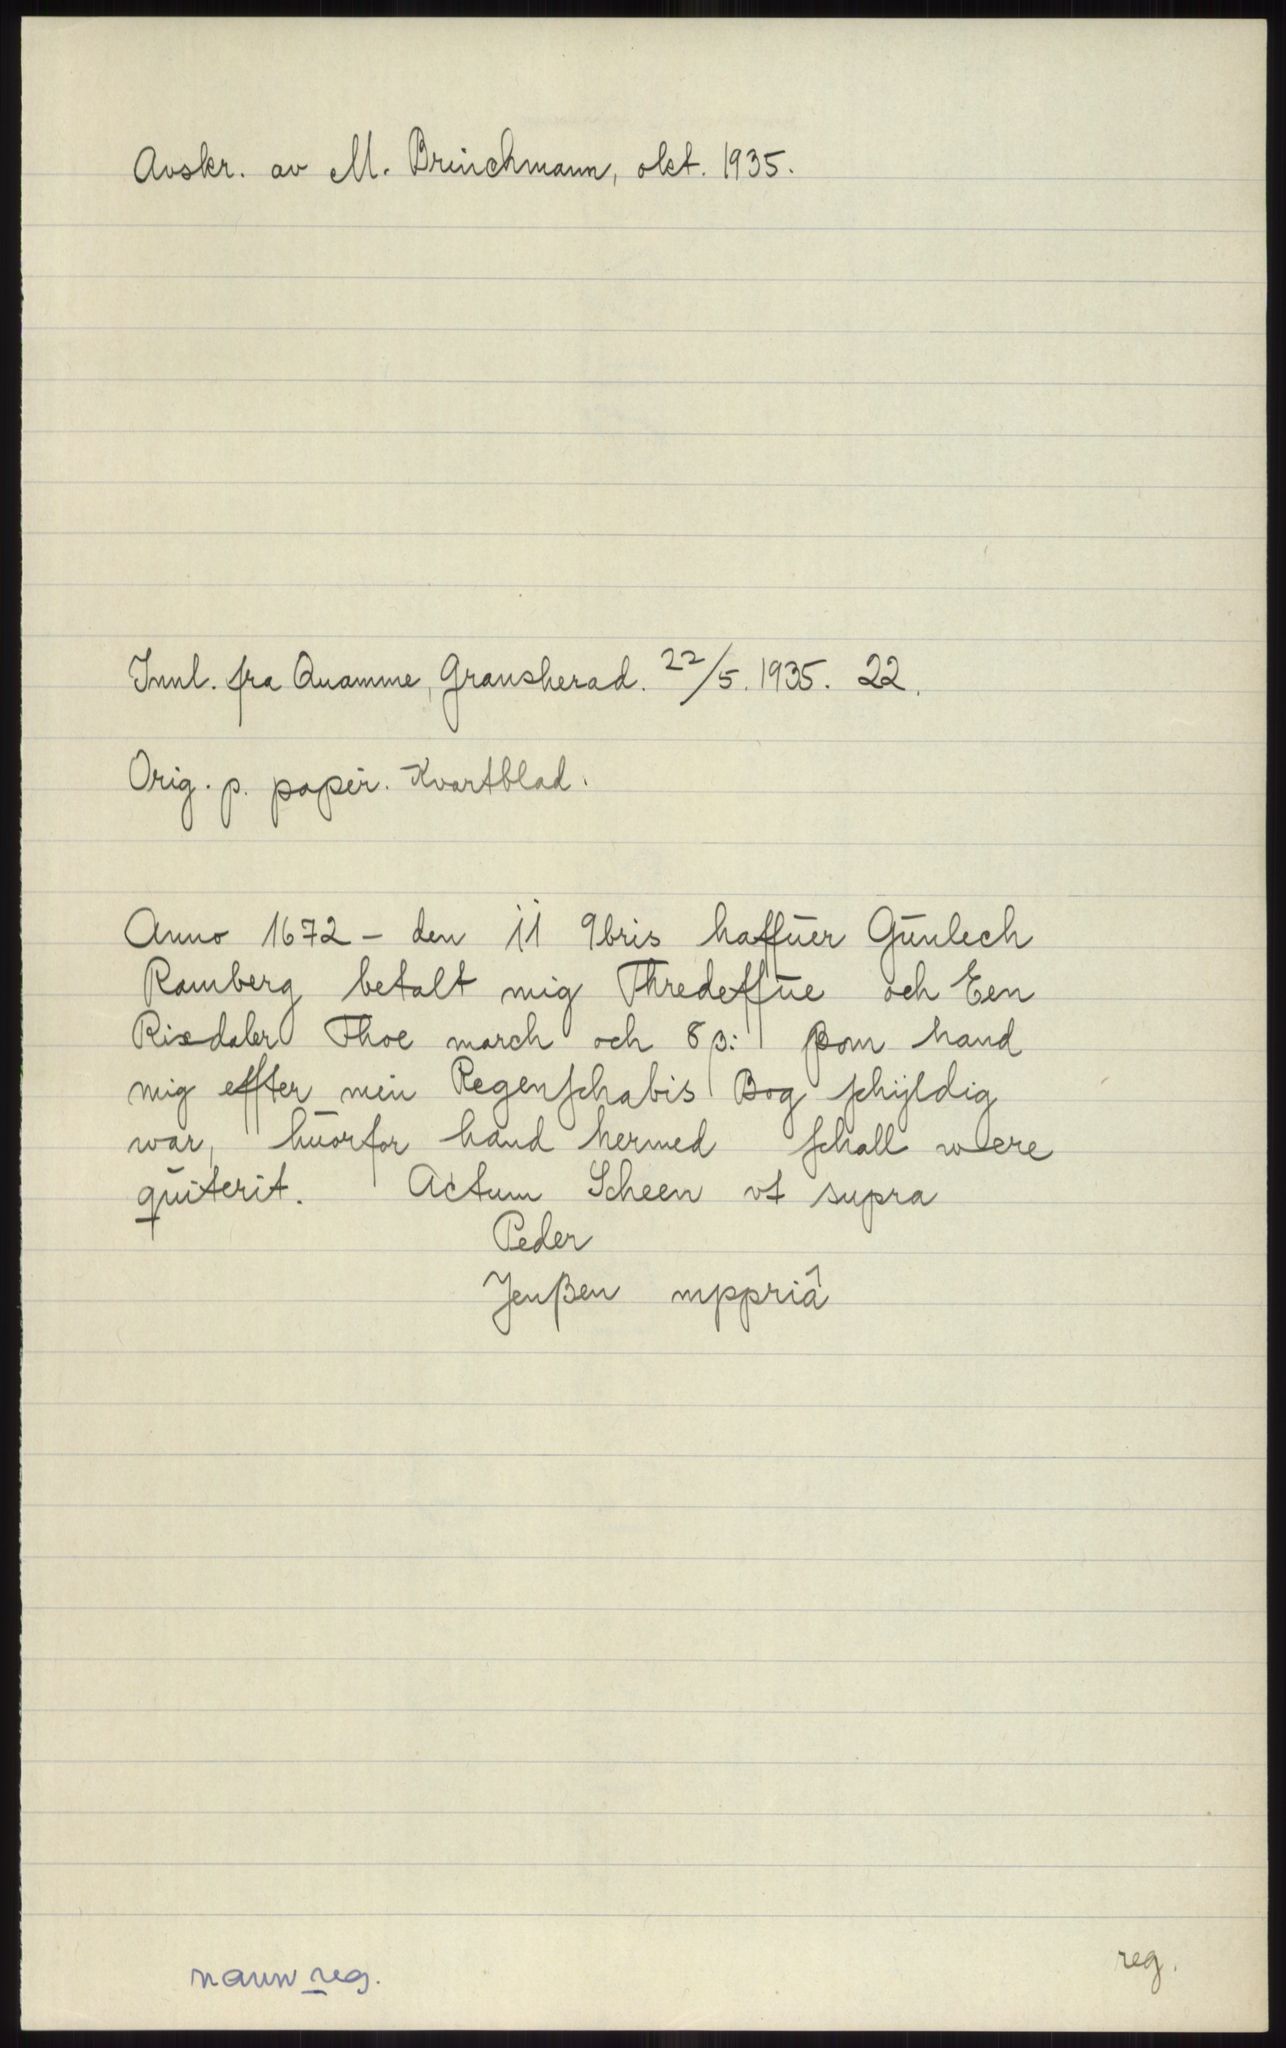 Avskr. av M. Brinchmann, okt. 1935.
Innl. fra Quamme, Gransherad. 22/5. 1935. 22.
Orig. p. papir. Kvartblad.
Anno 1672 - den ii 9bris haffūer Gūnlech
Ramberg betalt mig Thredeffūe och Een
Rixdaler Thoe march och 8 β: βom hand
mig effter min Regenschabis Bog schÿldig
war, hūorfor hand hermed schall were
qūiterit. Actum Scheen vt supra
Peder
Jenßen mppriâ
navn reg.
reg.